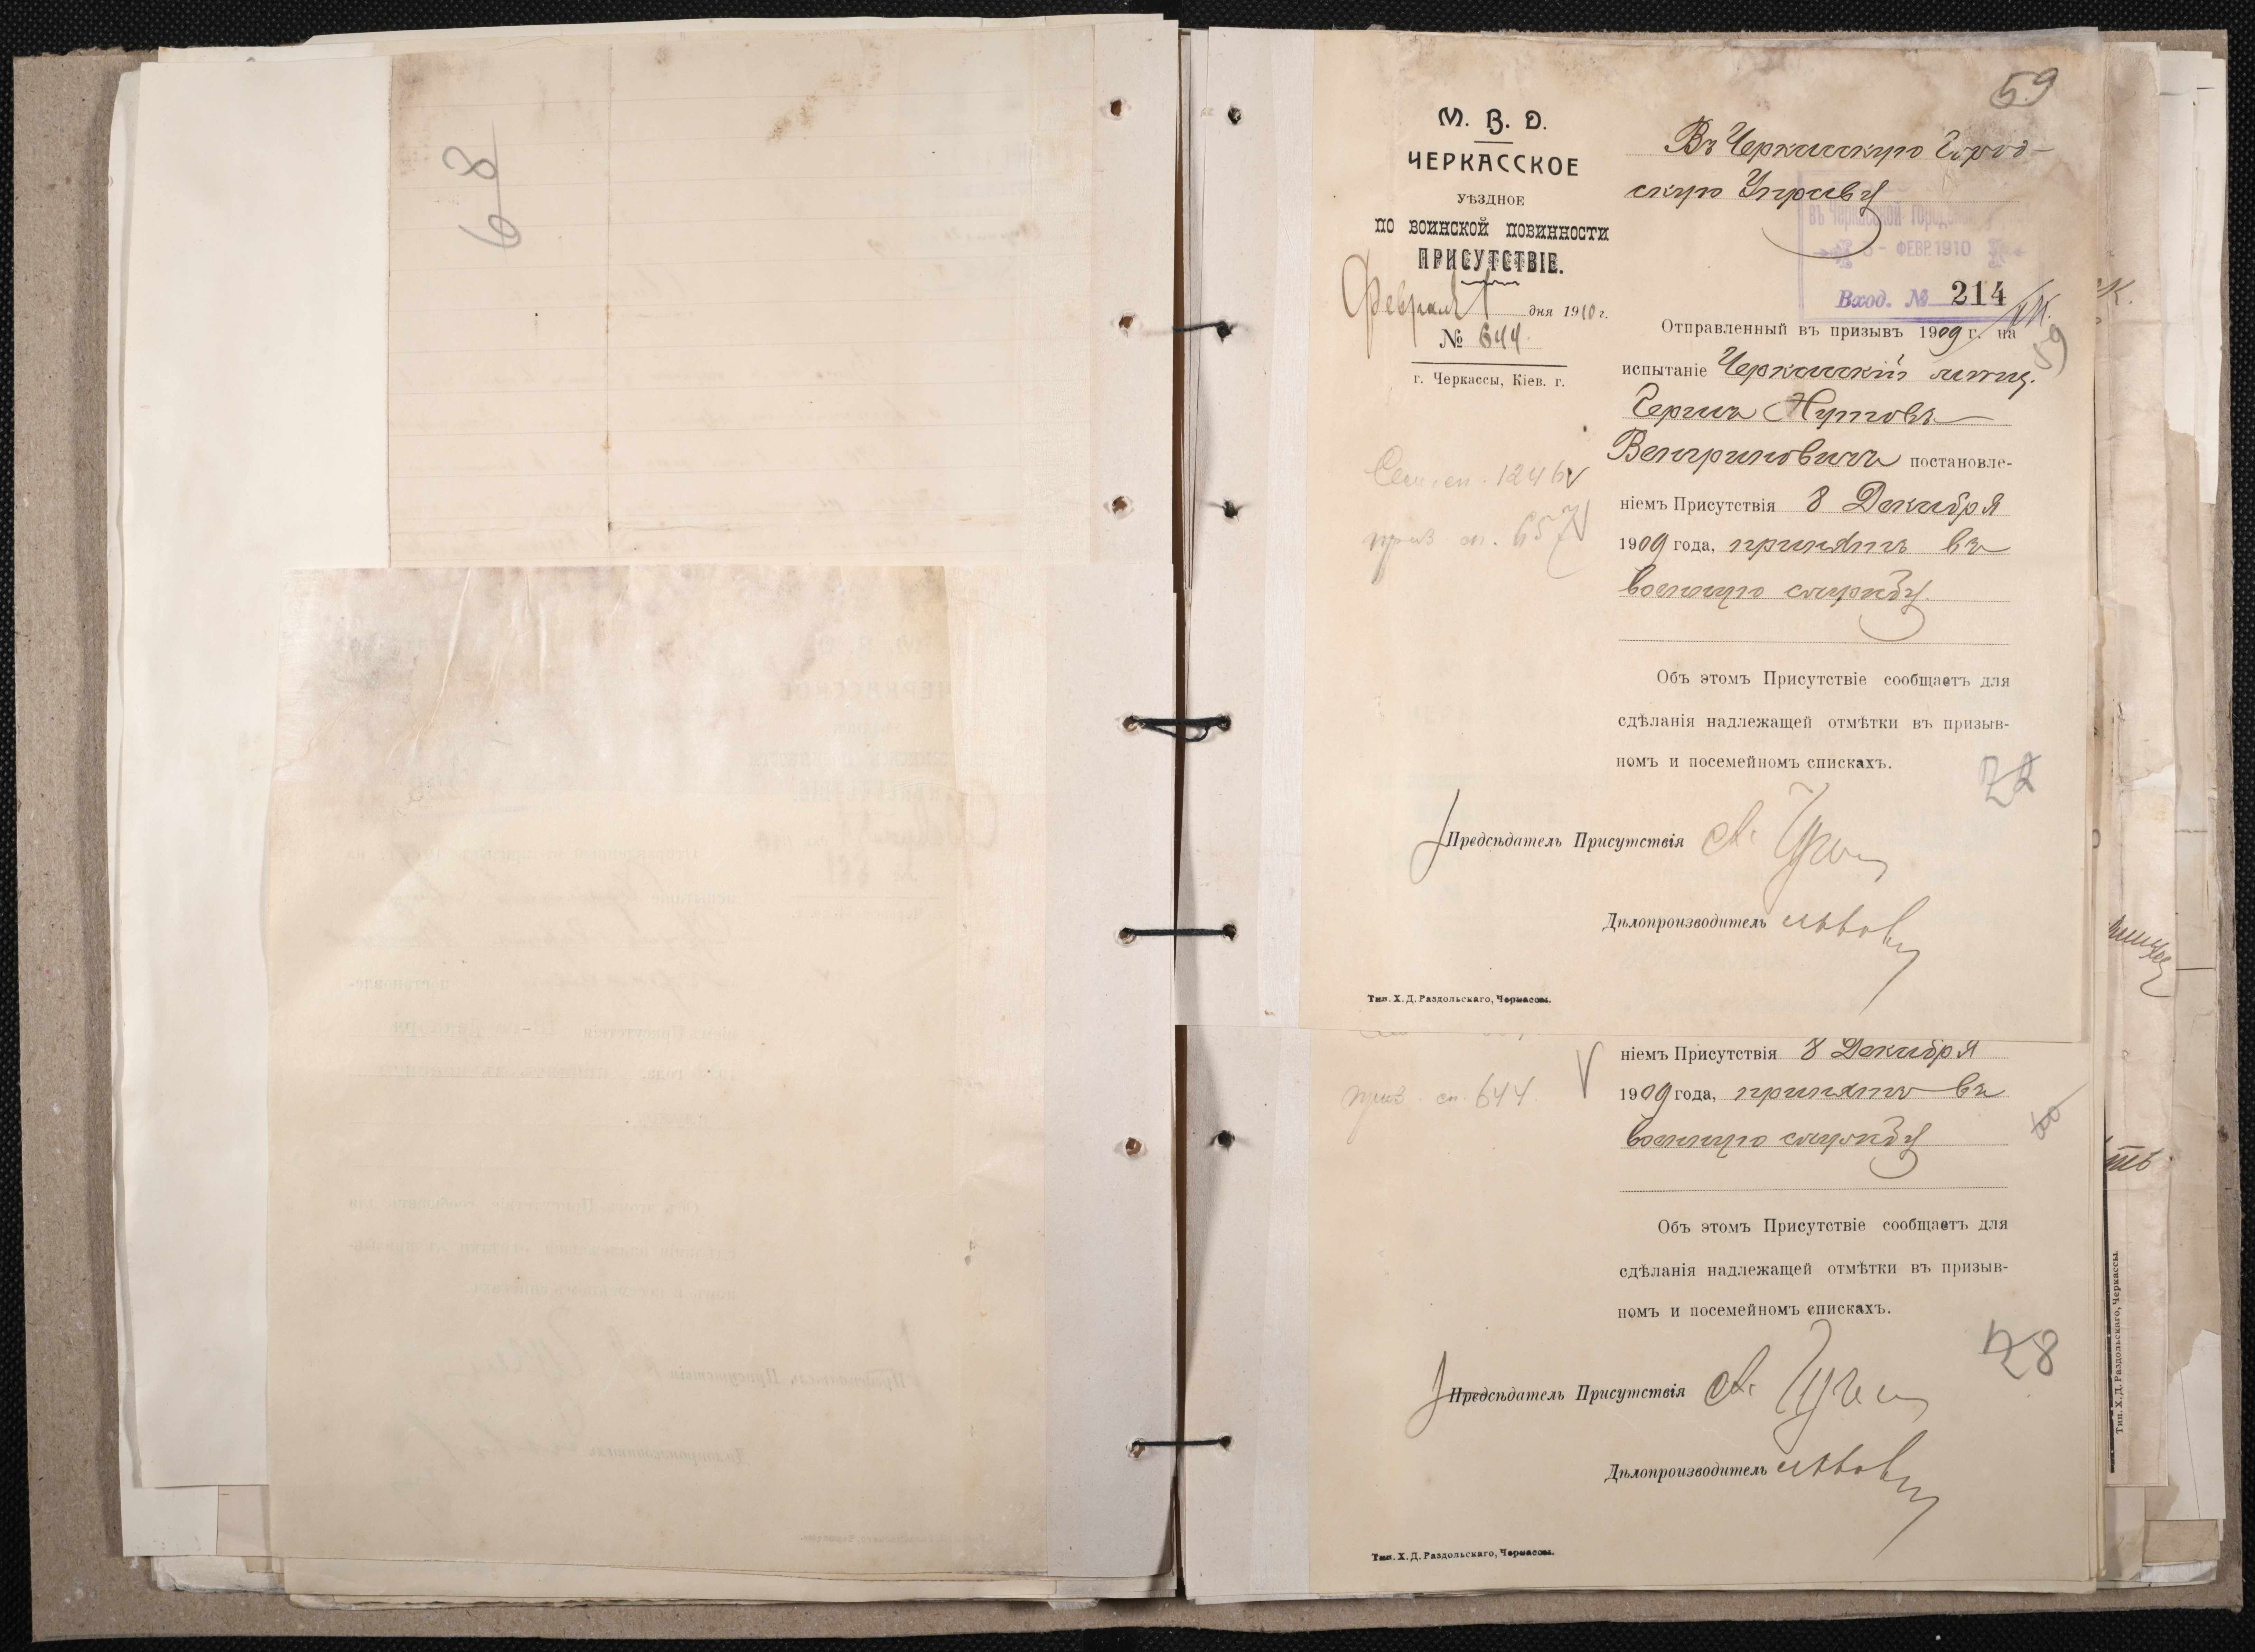 68
59
М. В. Д.
ЧЕРКАССКОЕ
УѢЗДНОЕ
ПО ВОИНСКОЙ ПОВИННОСТИ
ПРИСУТСТВІЕ.
Февраля 1 дня 1910 г.
№ 644
г. Черкассы, Кіев. г.
Въ Черкасскую Город-
скую Управу
въ Черкасской Город
- ФЕВР. 1910
Вход. № 214
59
Отправленный въ призывъ 1909 г. на
испытаніе Черкасскій мѣщ.
Герша Нутовъ
постановле-
ніемъ Присутствія 8 Декабря
1909 года, принятъ въ
военную службу.
Сем. сп. 1246
приз сп. 657
Объ этомъ Присутствіе сообщаетъ для
сдѣланія надлежащей отмѣтки въ призыв-
номъ и посемейномъ спискахъ.
Предсѣдатель Присутствія
Дѣлопроизводитель
Тип. Х. Д. Раздольскаго, Черкассы.
ніемъ Присутствія 8 Декабря
1909 года, принятъ въ
военную службу
приз. сп. 644.
Объ этомъ Присутствіе сообщаетъ для
сдѣланія надлежащей отмѣтки въ призыв-
номъ и посемейномъ спискахъ.
28
Предсѣдатель Присутствія
Дѣлопроизводитель
Тип. Х. Д. Раздольскаго, Черкассы.
Тип. Х. Д. Раздольскаго, Черкассы